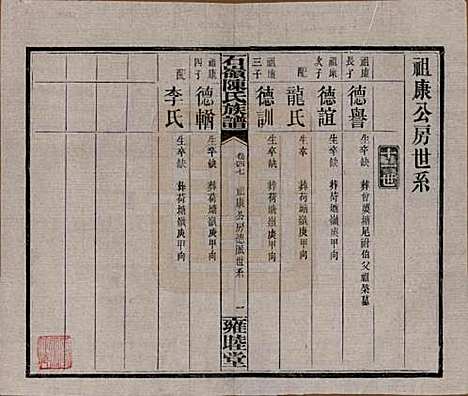 祖康公房世系
十一世
祖康長子 德譽 生卒缺 葬曾灣塘尾附伯父祖榮墓
祖康次子 德誼 生卒缺 葬荷塘嶺庚甲向
配 龍氏 生卒缺 葬荷塘嶺庚甲向
祖康三子 德訓 生卒缺 葬荷塘嶺庚甲向
石嶺陳氏族譜 卷四七 祖康公房德派世系 一 雍睦堂
祖康四子 德楢 生卒缺 葬荷塘嶺庚甲向
配 李氏 生卒缺 葬荷塘嶺庚甲向